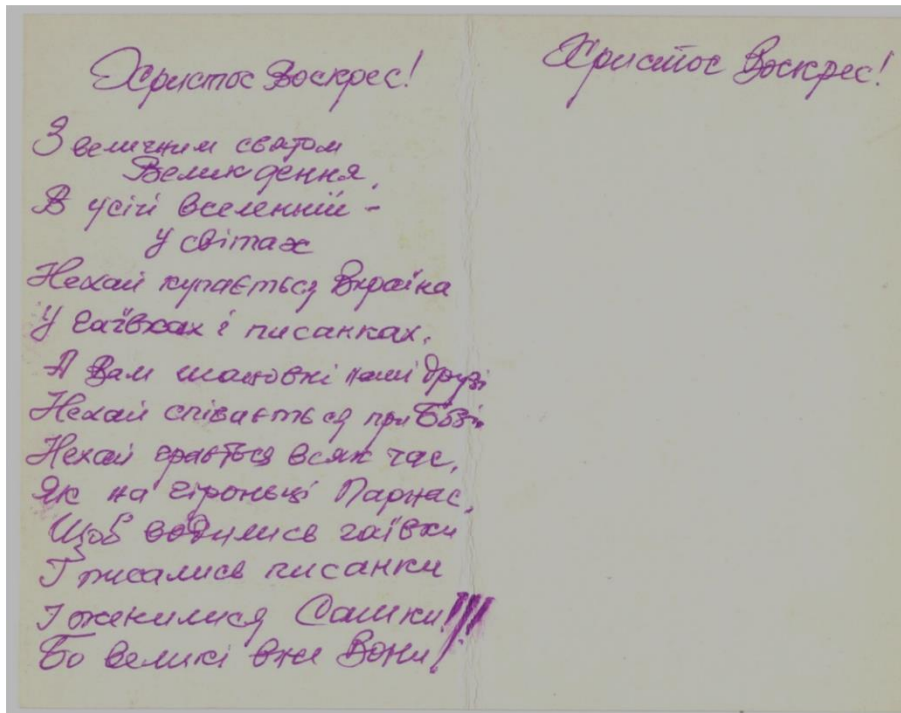 Христос Воскрес!
З величним святом
Великодення,
В усій вселенній -
у світах
Нехай купається Вкраїна
У гаївках і писанках,
А Вам шановні наші друзі
Нехай співається при Бозі
Нехай грається всяк час,
Як на гіроньці Парнас,
Щоб водились гаївки
І писались писанки
І женилися Сашки!!!
Бо великі вже Вони!
Христос Воскрес!